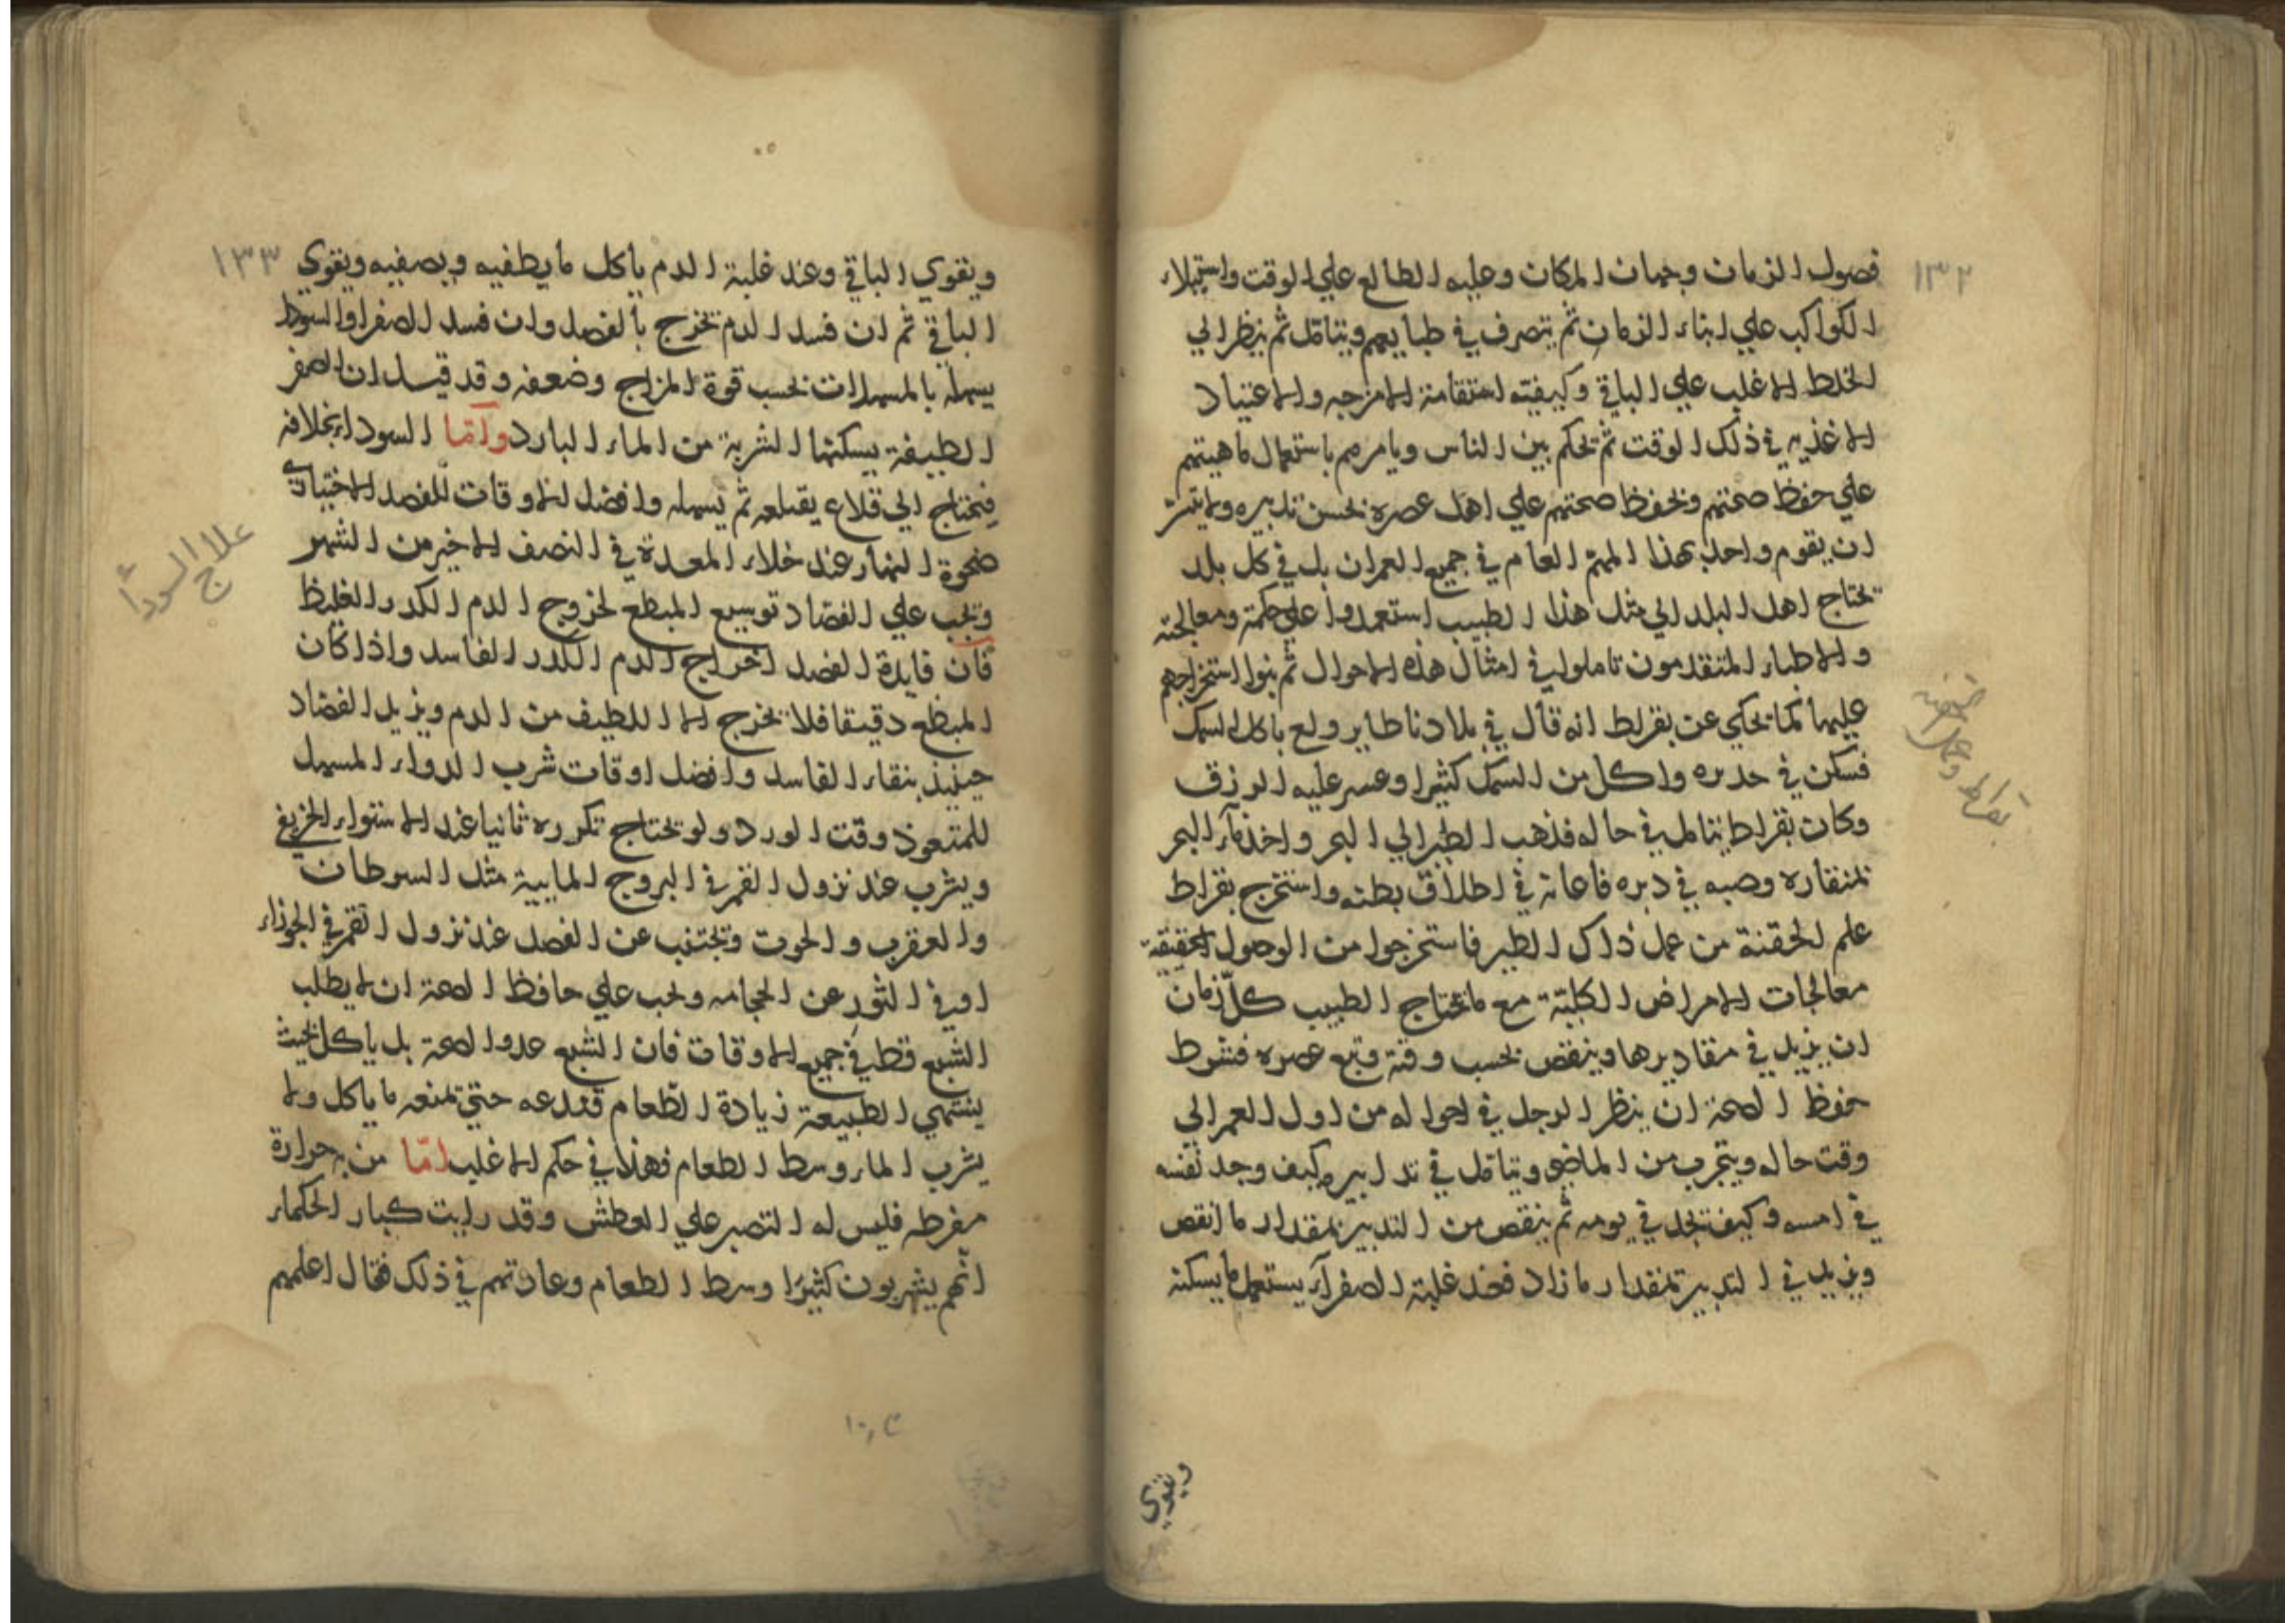 ١٣٢
فصول الزمان وجهات المكان وعلبه الطالع علي الوقت واستيلاء
الكواكب علي ابناء الزمان ثم يتصرف في طبايعهم ويتامل ثم ينظر الي
الخلط الاغلب علي الباقي وكيفيته استقامة الامزجه والاعتياد
الاغذيه في ذلك الوقت ثم يحكم بين الناس ويامرهم باستعمال ماهيتهم
علي حفظ صحتهم ويحفظ صحتهم علي اهل عصره بحسن تدبيره ولا
ان يقوم واحد بهذا المهم العام في جميع العمران بل في كل بلد
يحتاج اهل البلد الي مثل هذا الطبيب استعمدوا علي حكمة ومعالجته
والاطباء المتقدمون تاملوا في امثال هذه الاحوال ثم بنوا استخراجهم
عليها كما يحكي عن بقراط انه قال في بلادنا طاير ولع باكل السمك
فسكن في حدره واكل من السمك كثيرا وعسر عليه الوزق
وكان بقراط يتامل في حاله فذهب الطير الي البحر واخذ مآء البحر
بمنقاره وصبه في دبره فاعانه في اطلاق بطنه واستخرج بقراط
علم الحقنة من عمل ذاك الطير فاستخرجوا من الوصول الحقيقة
معالجات الامراض الكليّة مع ما يحتاج الطبيب كلّ زمان
ان يزيد في مقاديرها وينقص بحسب وقته وتبع عصره فشرط
حفظ الصحة ان ينظر الرجل في احواله من اول العمر الي
وقت حاله ويتجرب من الماضي ويتامل في تدابيره كيف وجد نفسه
في امسه وكيف تجد في يومه ثم ينقص من التدبير بمقدار ما انقص
ويزيد في التدبير بمقدار ما زاد فعند غلبة الصفرآء يستعمل ما يسكنه
بقراط
ويقوي
١٣٣
ويقوي الباقي وعند غلبة الدم ياكل ما يطفيه ويصفيه ويقوي
الباقي ثم ان فسد الدم يخرج بالفصد وان فسد الصفرا والسودا
يسهله بالمسهلات بحسب قوة المزاج وضعفه وقد قيل ان الصفر
اللطيفة يسكنها الشربة من الماء البارد وآمّا السوداء بخلافه
فيحتاج الي قلاع يقلعه ثم يسهله وافضل الاوقات للفصد الاختياري
ضحوة النهار عند خلاء المعدة في النصف الاخير من الشهر
ويجب علي الفصّاد توسيع المبطع لخروج الدم الكدر الغليظ
فان فايدة الفصد اخراج الدم الكدر الفاسد واذا كان
المبطع دقيقا فلا يخرج الا اللطيف من الدم ويزيد الفصاد
حينيذ بنقاء الفاسد وافضل اوقات شرب الدواء المسهل
للمتعوذ وقت الورد ولو يحتاج تكرره ثانيا عند الاستواء الخريفي
ويشرب عند نزول القمر في البروج المايية مثل السرطان
والعقرب والحوت ويجتنب عن الفصد عند نزول القمر في الجوزاء
او في الثور عن الحجامه ويجب علي حافظ الصحة ان لا يطلب
الشبع قط في جميع الاوقات فان الشبع عدو الصحة بل ياكل بحيث
يشتهي الطبيعة زيادة الطّعام فتدعه حتي تمنعه ما ياكل ولا
يشرب الماء وسط الطعام فهذا في حكم الاغلب امّا من به حرارة
مفرطه فليس له التصبر علي العطش وقد رايت كبار الحكماء
انّهم يشربون كثيرا وسط الطعام وعادتهم في ذلك فقال اعلمهم
علاج السودآء